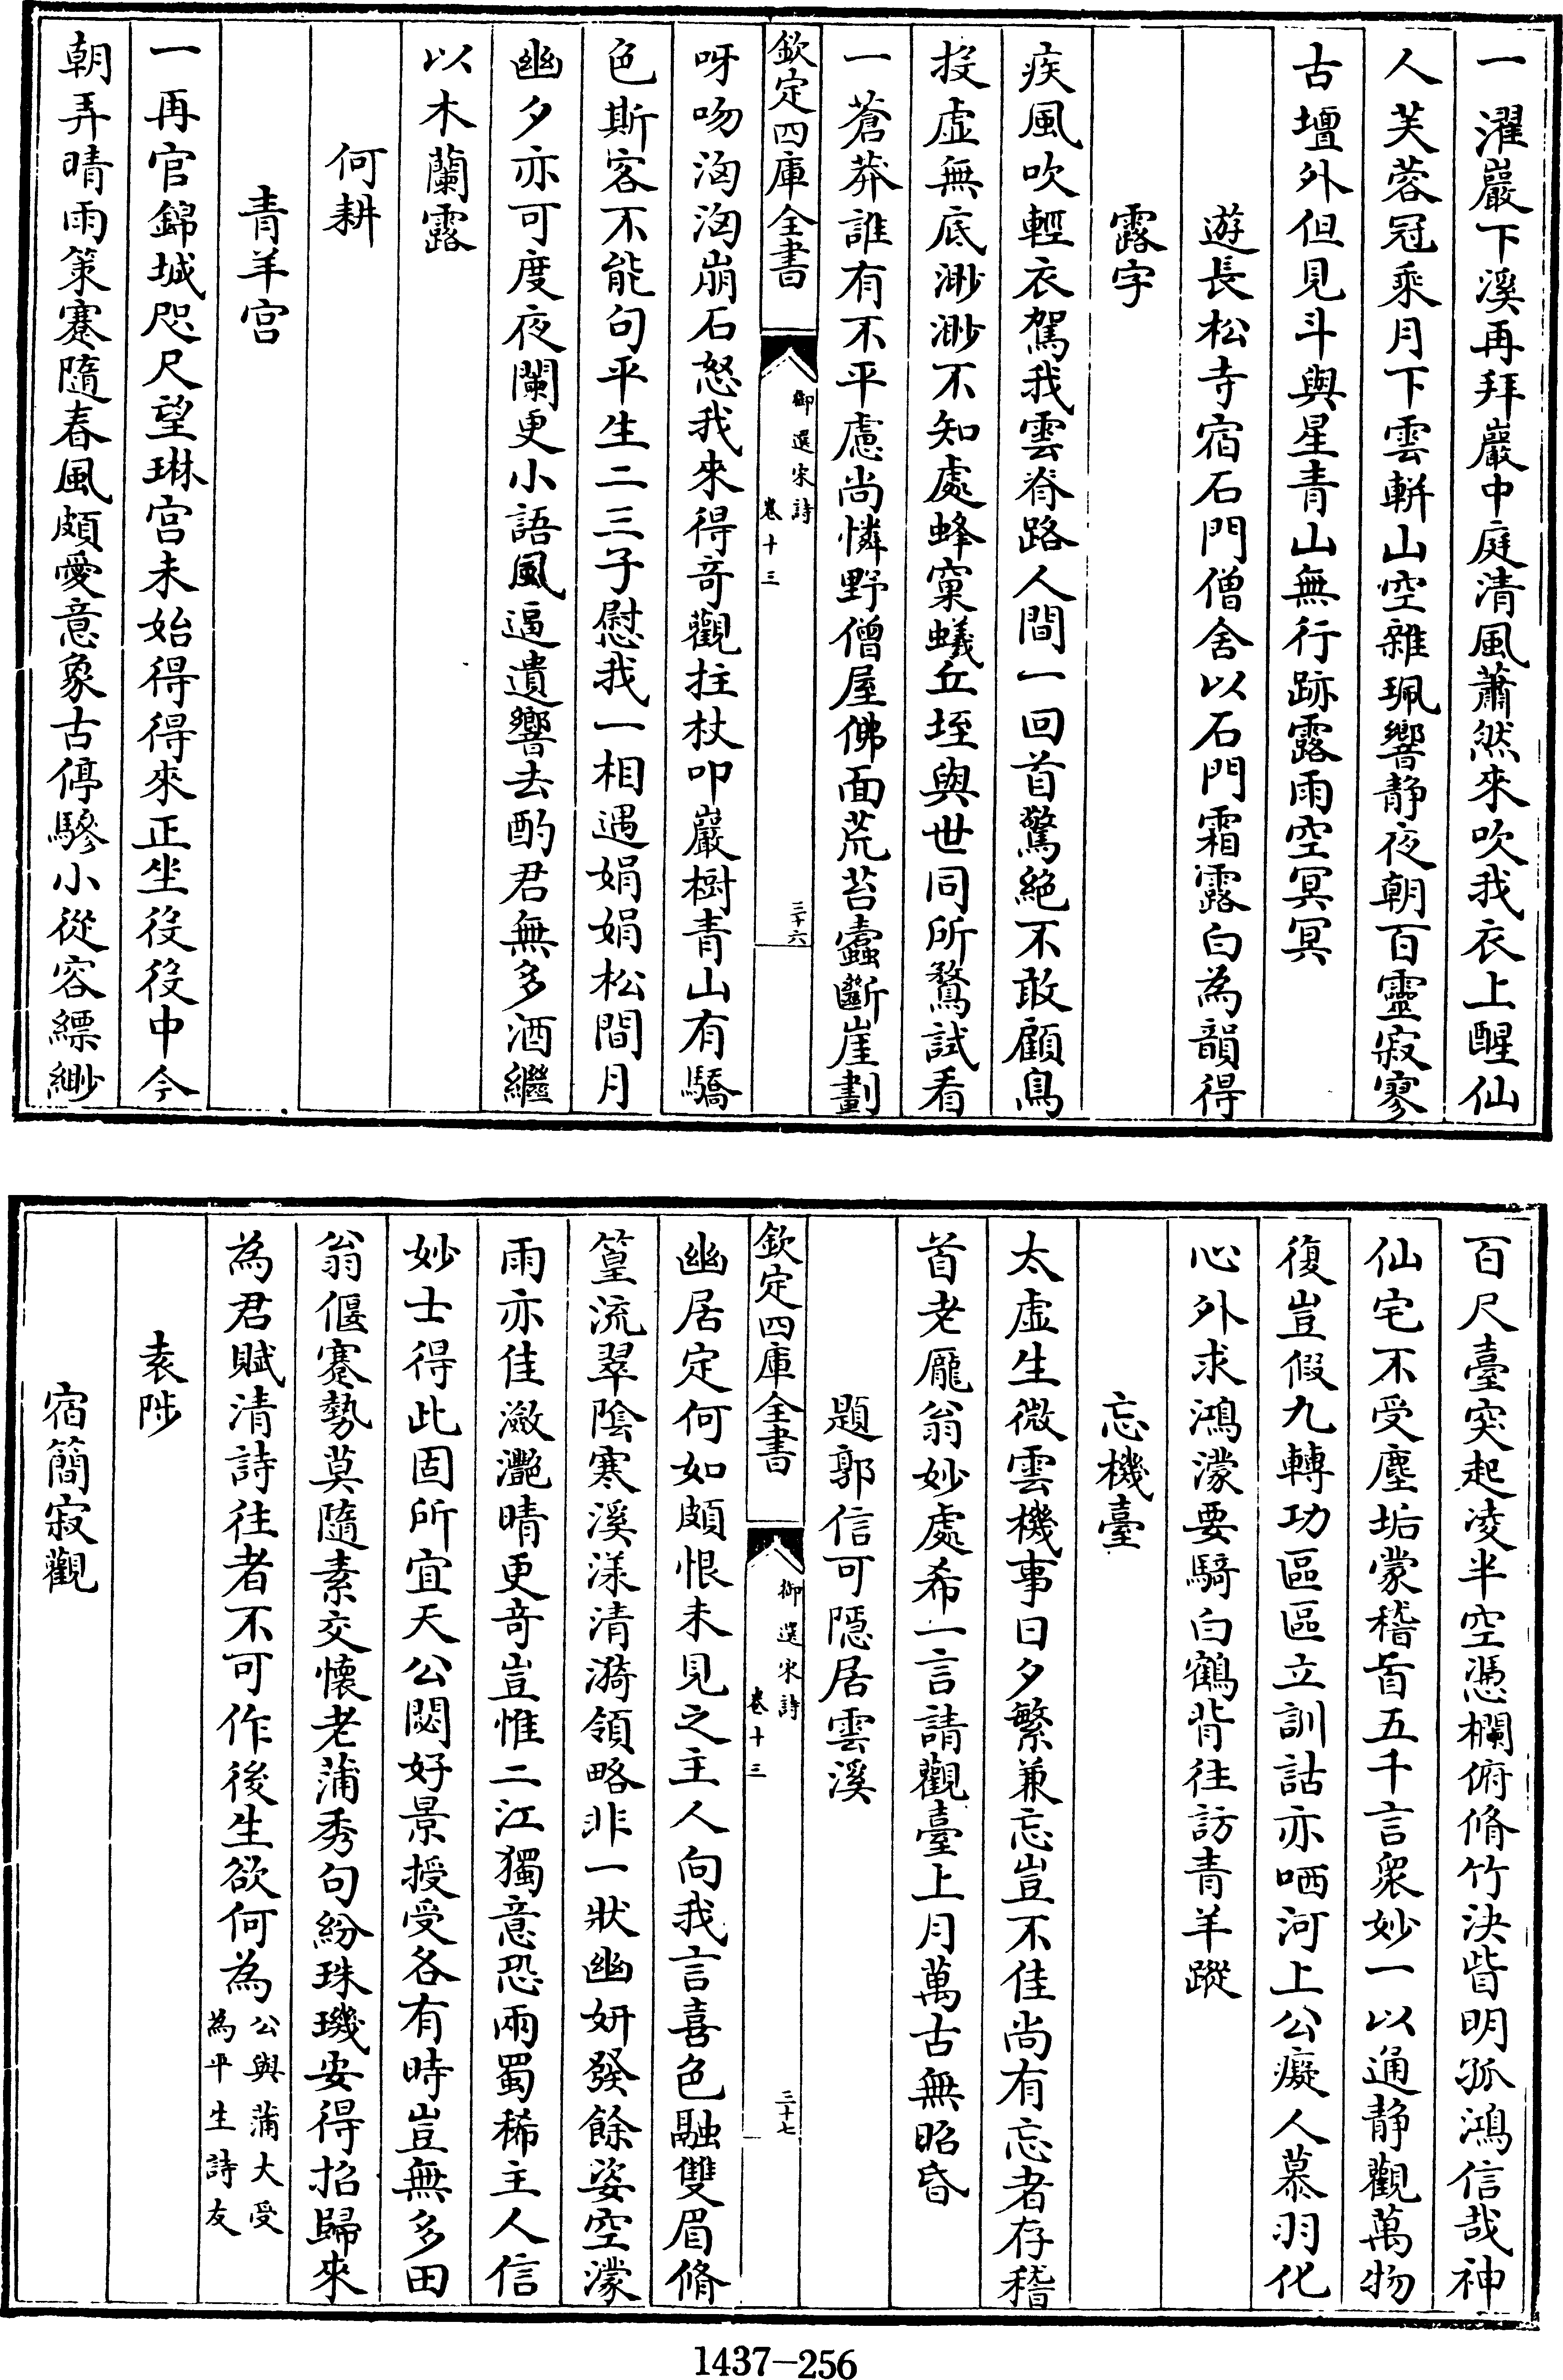 一濯巖下溪再拜巖中庭清風蕭然來吹我衣上醒仙
人芙蓉冠乘月下雲軿山空雜珮響静夜朝百靈寂寥
古壇外但見斗與星青山無行跡露雨空冥冥
遊長松寺宿石門僧舍以石門霜露白為韻得
露字
疾風吹輕衣駕我雲脊路人間一回首驚絶不敢顧鳥
投虚無底渺渺不知處蜂窠蟻丘垤與世同所騖試看
一蒼莽誰有不平慮尚憐野僧屋佛面荒苔蠹斷崖劃
欽定四庫全書
御選宋詩
卷十三
三十六
呀吻洶洶崩石怒我來得竒觀拄杖叩巖樹青山有驕
色斯客不能句平生二三子慰我一相遇娟娟松間月
幽夕亦可度夜闌更小語風逼遺響去酌君無多酒繼
以木蘭露
何耕
青羊宫
一再官錦城咫尺望琳宫未始得得來正坐役役中今
朝弄晴雨策蹇隨春風頗愛意象古停驂小從容縹緲
百尺臺突起凌半空憑欄俯脩竹決眥明孤鴻信哉神
仙宅不受塵垢蒙稽首五千言衆妙一以通静觀萬物
復豈假九轉功區區立訓詁亦哂河上公癡人慕羽化
心外求鴻濛要騎白鶴背往訪青羊蹤
忘機臺
太虚生微雲機事日夕繁兼忘豈不佳尚有忘者存稽
首老龎翁妙處希一言請觀臺上月萬古無昭昏
題郭信可隱居雲溪
欽定四庫全書
御選宋詩
卷十三
三十七
幽居定何如頗恨未見之主人向我言喜色融雙眉脩
篁流翠陰寒溪漾清漪領略非一狀幽妍發餘姿空濛
雨亦佳瀲灔晴更竒豈惟二江獨意恐兩蜀稀主人信
妙士得此固所宜天公閟好景授受各有時豈無多田
翁偃蹇勢莫隨素交懷老蒲秀句紛珠璣安得招歸來
為君賦清詩往者不可作後生欲何為公與蒲大受
為平生詩友
袁陟
宿簡寂觀
1437—256